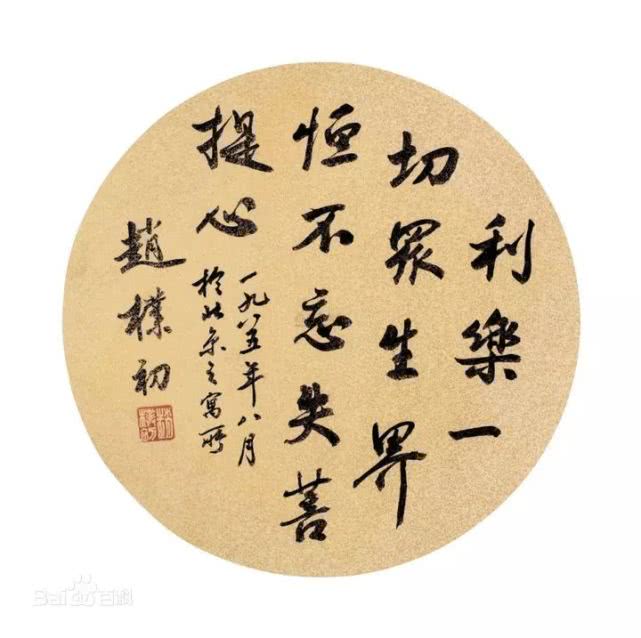 利樂一
切眾生界
恒不忘失菩
提心
一九八五年八月
於北京之寓所
趙樸初
Bai百科